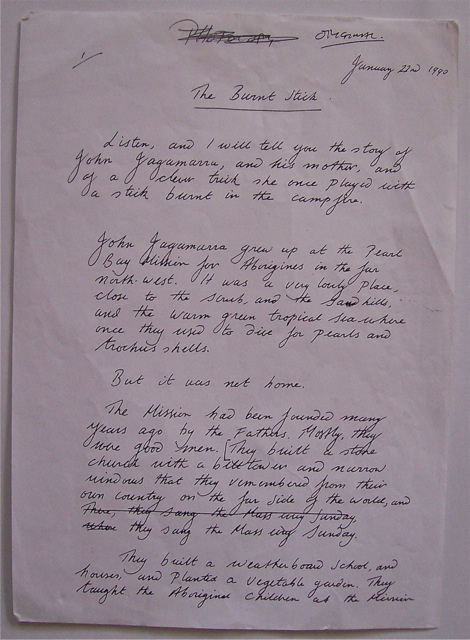 ~~Photocopy~~ Original.
1
January 22nd 1990
The Burnt Stick.
Listen, and I will tell you the story of
John Jagamarra, and his mother, and
of a clever trick she once played with
a stick burnt in the campfire.
John Jagamarra grew up at the Pearl
Bay Mission for Aborigines in the far
north-west. It was a very lovely place,
close to the scrub, and the sand hills,
and the warm green tropical sea where
once they used to dive for pearls and
trochus shells.
But it was not home.
The Mission had been founded many
years ago by the Fathers. Mostly, they
were good men. [They built a stone
church with a bell tower and narrow
windows that they remembered from their
own country on the far side of the world, and
~~There, they sang the Mass every Sunday,~~
~~where~~ they sang the Mass every Sunday.
They built a weatherboard school, and
houses, and planted a vegetable garden. They
taught the Aboriginal children at the Mission